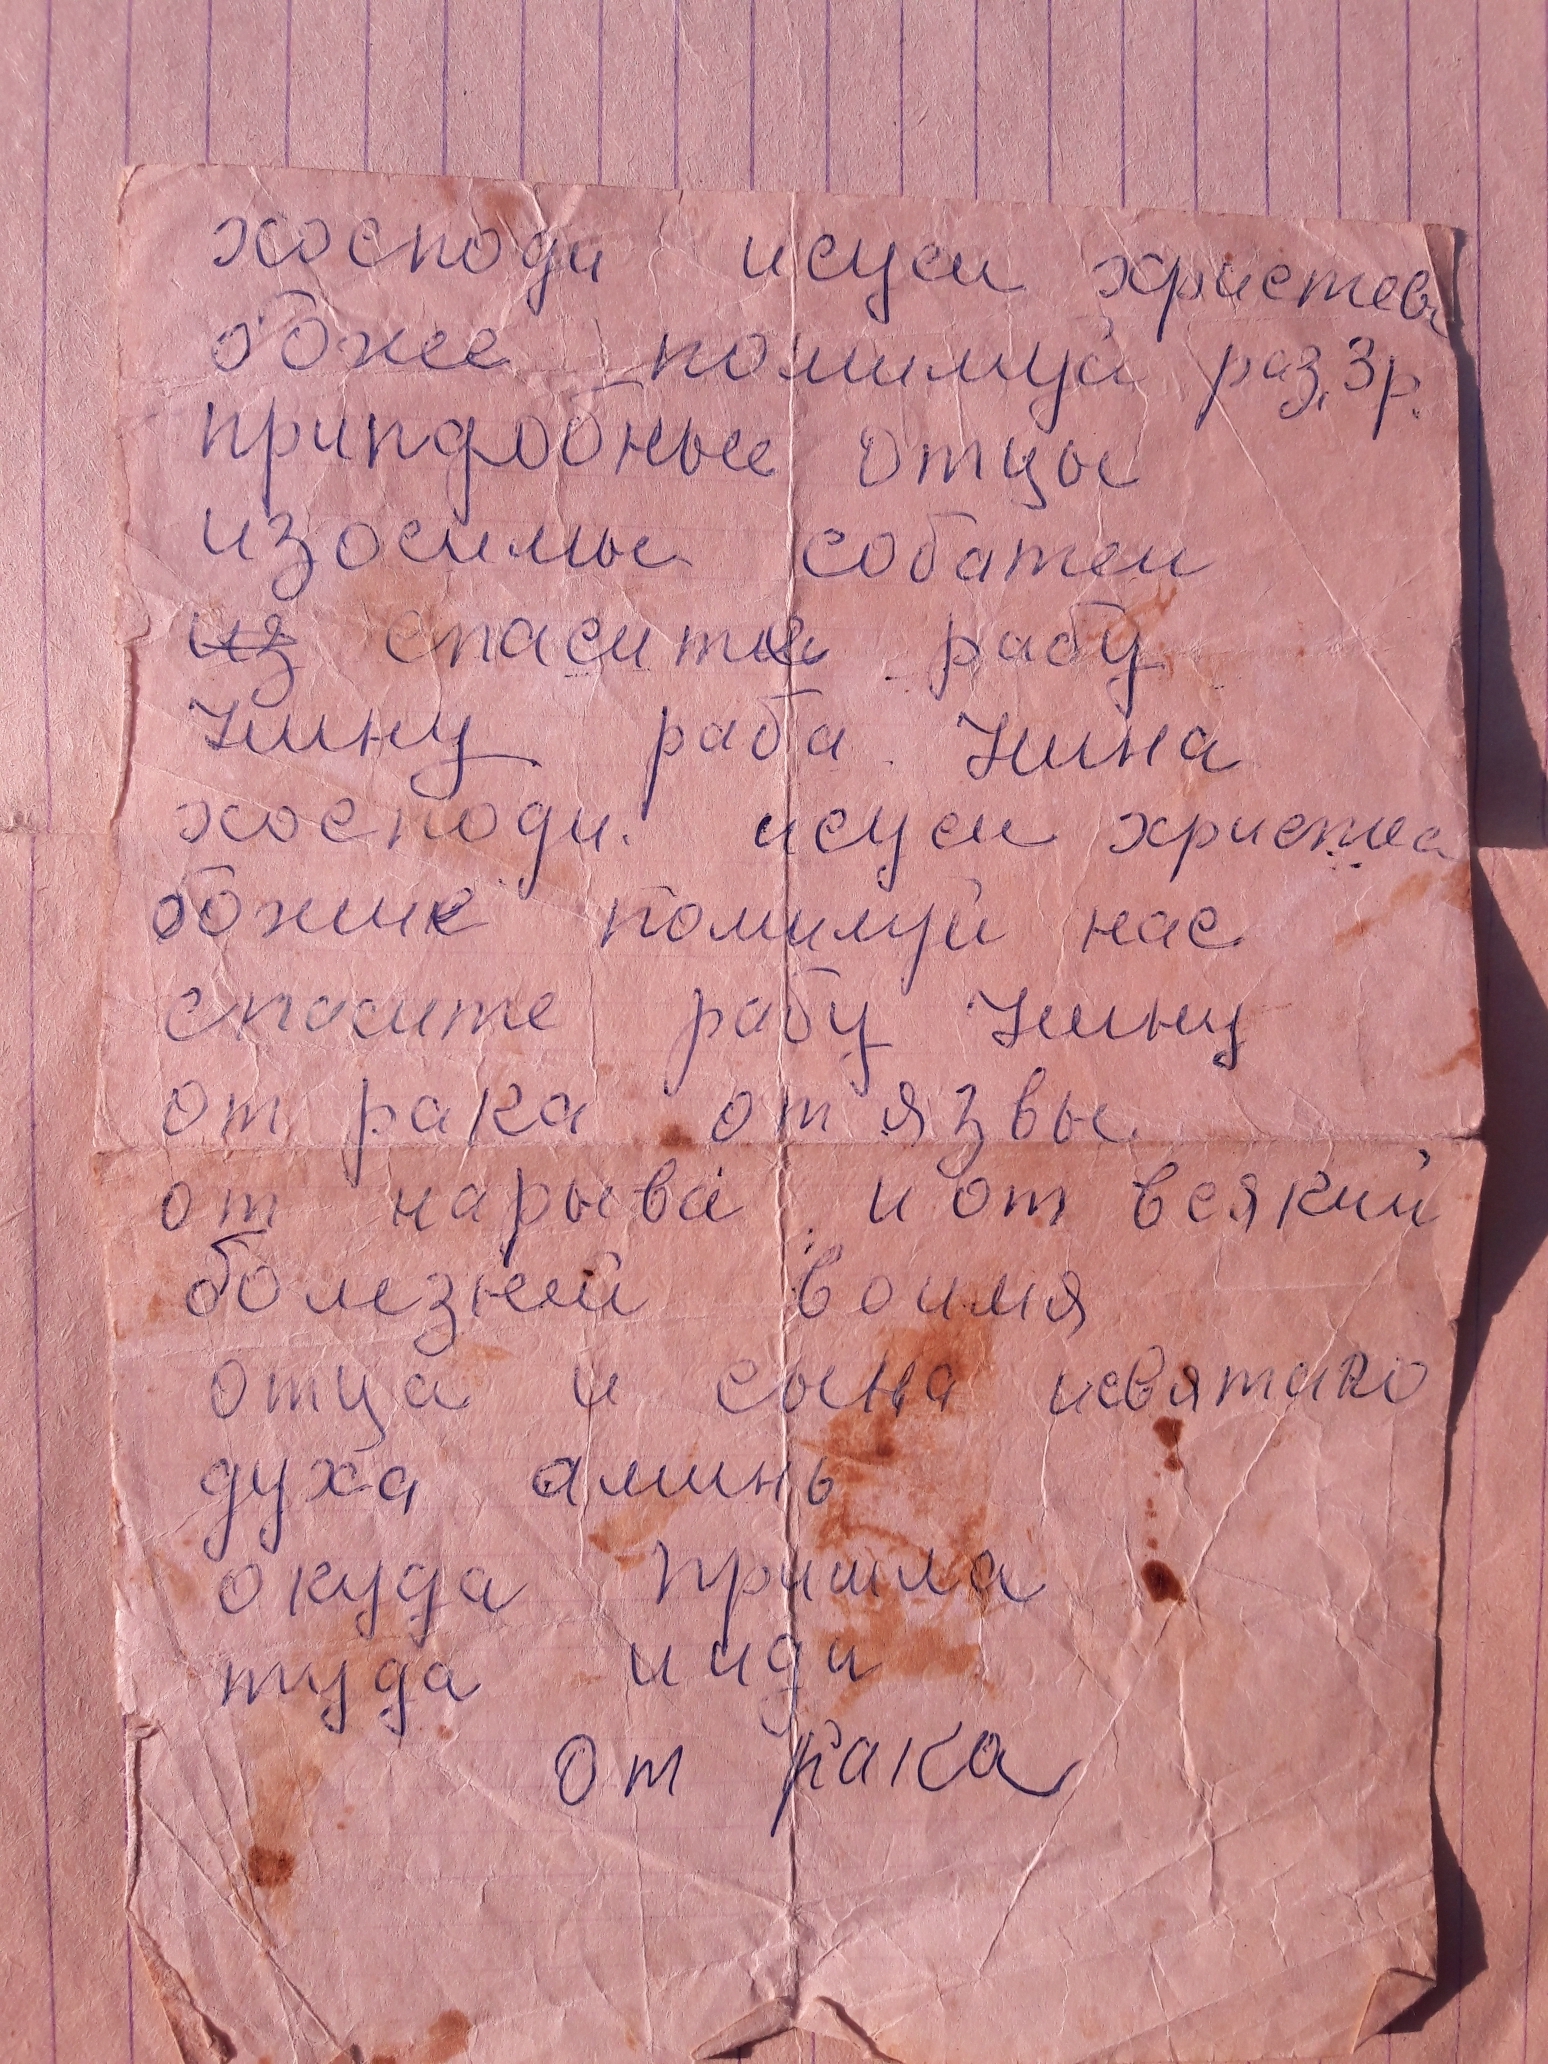 хосподи исуси христевы
божее помилмуй раз, 3р.
припдобные отцы
изосимы собатеи
из спасите рабу
Нину раба Нина
хосподи. исуси христеа
божие помилуй нас
спасите рабу Нину
от рака от язвы
от нарыва и от всякий
болезней воимя
отца и сына исвятако
духа аминь
окуда пришла
туда и иди
от рака